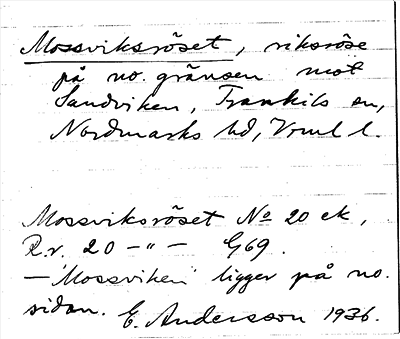 Mossviksröset, riksröse
på no. gränsen mot
Sandviken, Trankils sn,
Nordmarks hd, Vrml l.
Mossviksröset No 20 ek,
R.r. 20 -"- G69.
- "Mossviken" ligger på no.
sidan. E. Andersson 1936.